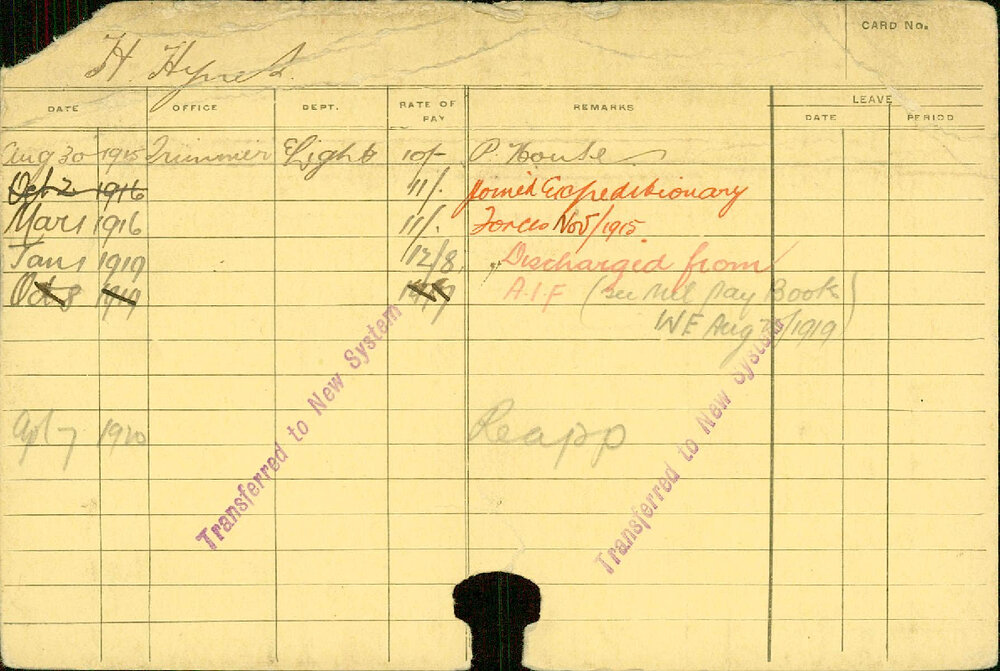 CARD No.
H. Hynes.
DATE OFFICE DEPT. RATE OF PAY REMARKS LEAVE
DATE PERIOD
Aug 30 1915 Trimmer Light 10/- P. House
Oct 2 1916 11/. Joined Expeditionary
Mar 1 1916 11/. Forces Nov/1915
Jan 1 1919 12/8 Discharged from
Oct 8 1919 A.I.F (See Mel Pay Book)
WE Aug /1919
Apl 7 1920 Reapp
Transferred to New System
Transferred to New System